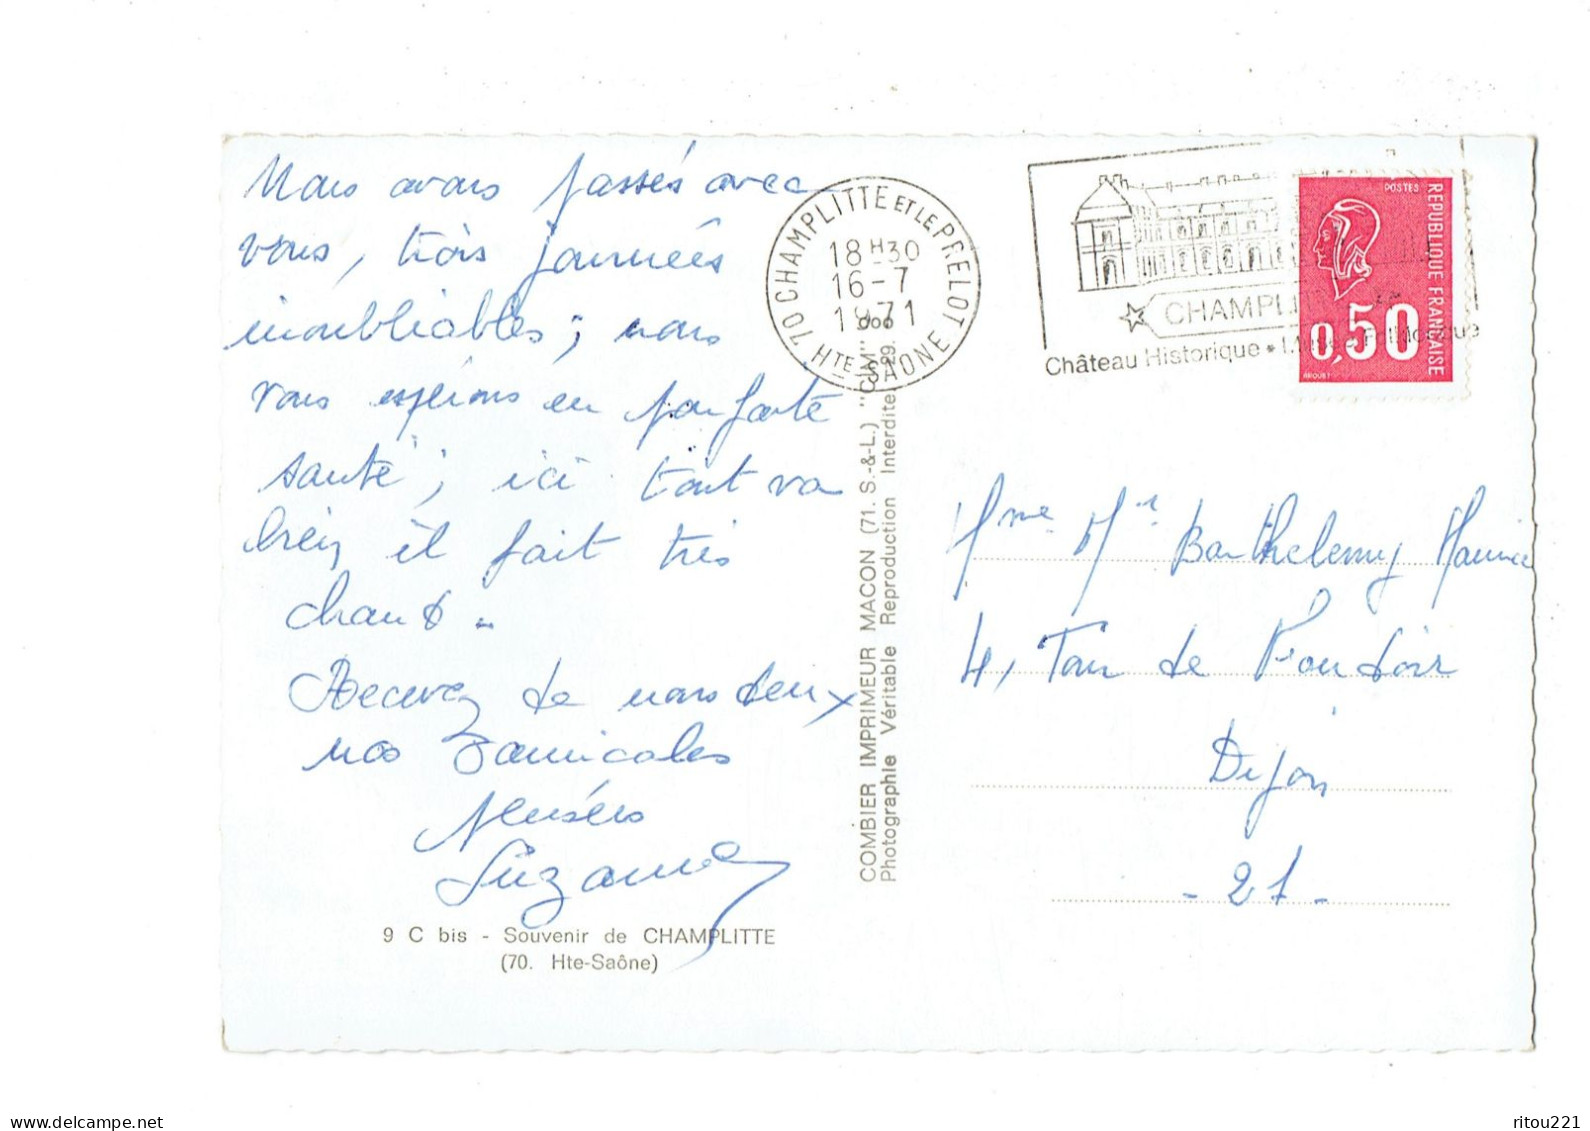 Nous avons passés avec
vous, trois journées
inoubliables ; nous
vous espérons en parfaite
santé ; ici tout va
bien il fait très
chaud.
Recevez de nous deux
nos amicales
pensées
Suzanne
9 C bis - Souvenir de CHAMPLITTE
(70. Hte-Saône)
COMBIER IMPRIMEUR MACON (71. S.-&-L.) "CIM"
Photographie Véritable Reproduction Interdite
70 CHAMPLITTE ET LE PRELOT
18 H 30
16-7
1971
HTE-SAONE
CHAMPLITTE
Château Historique • Musée Folklorique
POSTES
REPUBLIQUE FRANÇAISE
0,50
Mme Mr Barthelemy Maurice
4, Tour de
Dijon
- 21 -
ritou221